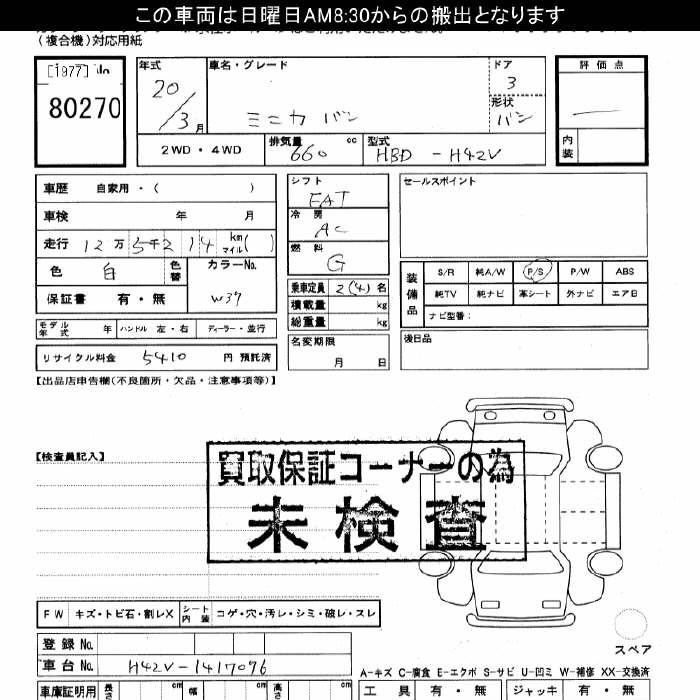 この車両は日曜日AM8:30からの搬出となります
(複合機)対応用紙
[1977] No
80270
年式 車名・グレード ドア 評価点
20/3月 ミニカ バン 3
形状 バン
内装
2WD・4WD 排気量 660 cc 型式 HBD-H42V
車歴 自家用・( )
車検 年 月
走行 12万5千214 km マイル( )
色 白 色替 カラーNo. W37
保証書 有・無
モデル年式 年 ハンドル 左・右 ディーラー・並行
リサイクル料金 5410 円 預託済
シフト FAT
冷房 AC
燃料 G
乗車定員 2(4)名
積載量 kg
総重量 kg
名変期限
月 日
セールスポイント
装備品 S/R 純A/W P/S P/W ABS
純TV 純ナビ 革シート 外ナビ エアB
ナビ型番:
後日品
【出品店申告欄(不良箇所・欠品・注意事項等)】
【検査員記入】
買取保証コーナーの為
未検査
FW キズ・トビ石・割レX シート内装 コゲ・穴・汚レ・シミ・破レ・スレ
スペア
登録No.
車台No. H42V-1417096
A-キズ C-腐食 E-エクボ S-サビ U-凹ミ W-補修 XX-交換済
車庫証明用 長さ cm 幅 cm 高さ cm 工具 有・無 ジャッキ 有・無